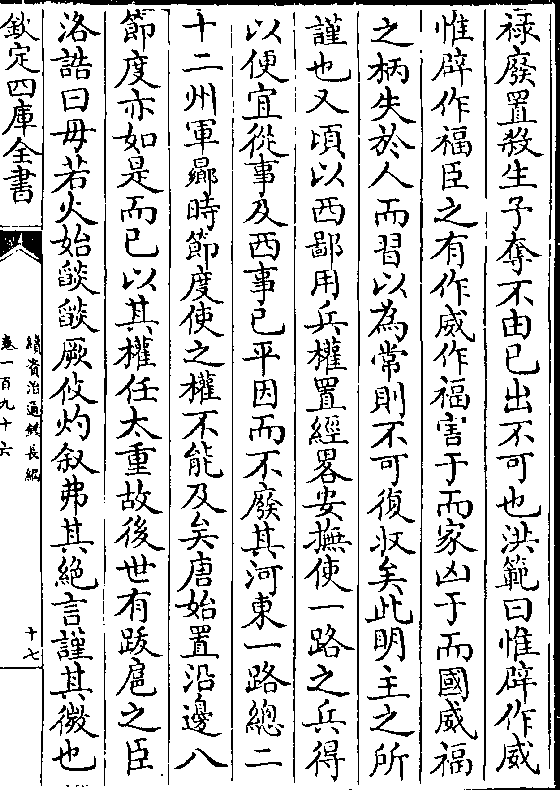 禄廢置殺生予奪不由已出不可也洪範曰惟辟作威
惟辟作福臣之有作威作福害于而家凶于而國威福
之柄失於人而習以為常則不可復収矣此明主之所
謹也又頃以西鄙用兵權置經畧安撫使一路之兵得
以便宜從事及西事已平因而不廢其河東一路總二
十二州軍曏時節度使之權不能及矣唐始置沿邊八
節度亦如是而已以其權任太重故後世有跋扈之臣
洛誥曰毋若火始燄燄厥攸灼叙弗其絶言謹其微也
欽定四庫全書
續資治通鑑長編
卷一百九十六
十七